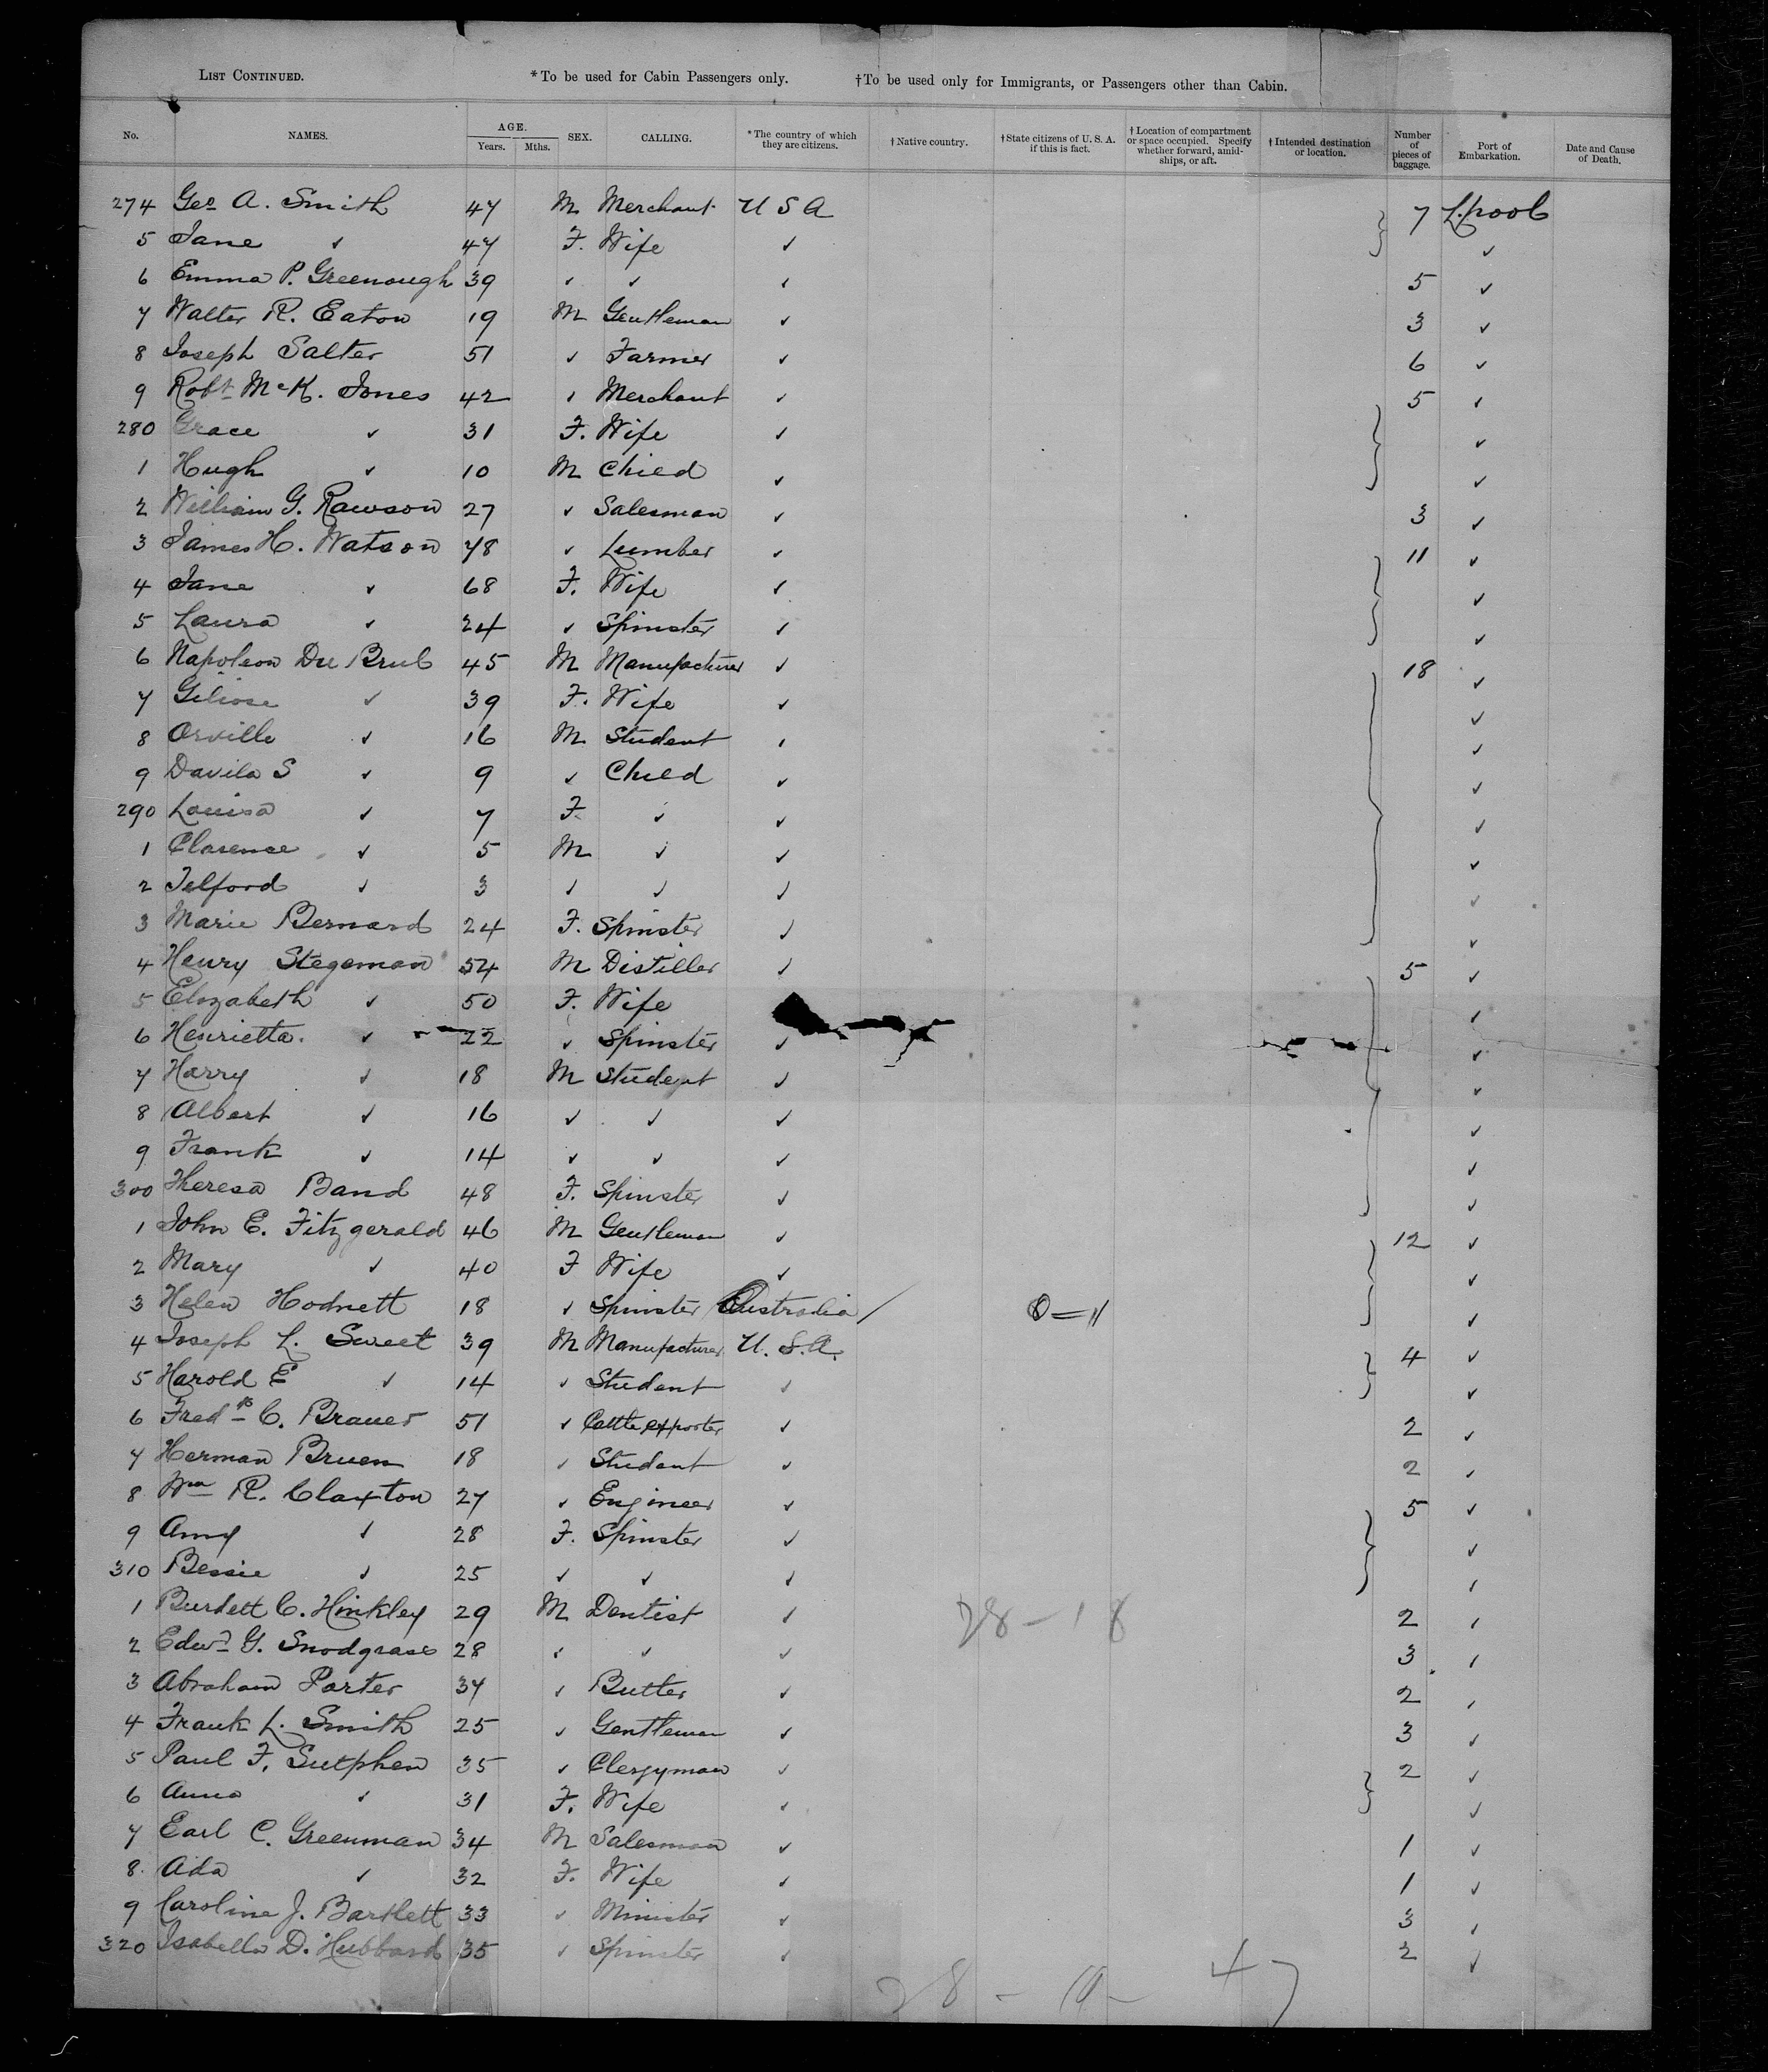 LIST CONTINUED. *To be used for Cabin Passengers only. †To be used only for Immigrants, or Passengers other than Cabin.
No. NAMES. AGE. Years. Mths. SEX. CALLING. *The country of which they are citizens. †Native country. †State citizens of U. S. A. if this is fact. †Location of compartment or space occupied. Specify whether forward, amidships, or aft. †Intended destination or location. Number of pieces of baggage. Port of Embarkation. Date and Cause of Death.
274 Geo A. Smith 47 M Merchant U S A 7 L.pool
5 Jane ✓ 47 F. Wife ✓ ✓
6 Emma P. Greenough 39 ✓ ✓ ✓ 5 ✓
7 Walter R. Eaton 19 M Gentleman ✓ 3 ✓
8 Joseph Salter 51 ✓ Farmer ✓ 6 ✓
9 Robt McK. Jones 42 ✓ Merchant ✓ 5 ✓
280 Grace ✓ 31 F. Wife ✓ ✓
1 Hugh ✓ 10 M Child ✓ ✓
2 William G. Rawson 27 ✓ Salesman ✓ 3 ✓
3 James H. Watson 78 ✓ Lumber ✓ 11 ✓
4 Jane ✓ 68 F. Wife ✓ ✓
5 Laura ✓ 24 ✓ Spinster ✓ ✓
6 Napoleon Du Brul 45 M Manufacturer ✓ 18 ✓
7 ✓ 39 F. Wife ✓ ✓
8 Orville ✓ 16 M Student ✓ ✓
9 Davila S ✓ 9 ✓ Child ✓ ✓
290 Louisa ✓ 7 F. ✓ ✓ ✓
1 Clarence ✓ 5 M ✓ ✓ ✓
2 Telford ✓ 3 ✓ ✓ ✓ ✓
3 Marie Bernard 24 F. Spinster ✓ ✓
4 Henry Stegeman 54 M Distiller ✓ 5 ✓
5 Elizabeth ✓ 50 F. Wife ✓
6 Henrietta. ✓ 22 ✓ Spinster ✓ ✓
7 Harry ✓ 18 M Student ✓ ✓
8 Albert ✓ 16 ✓ ✓ ✓ ✓
9 Frank ✓ 14 ✓ ✓ ✓ ✓
300 Theresa Band 48 F. Spinster ✓ ✓
1 John E. Fitzgerald 46 M Gentleman ✓ 12 ✓
2 Mary ✓ 40 F Wife ✓ ✓
3 Helen Hodnett 18 ✓ Spinster Australia / ✓
4 Joseph L. Sweet 39 M Manufacturer U. S. A. 4 ✓
5 Harold E ✓ 14 ✓ Student ✓ ✓
6 Fredk C. Brauer 51 ✓ Cattle exporter ✓ 2 ✓
7 Herman Bruen 18 ✓ Student ✓ 2 ✓
8 Wm R. Claxton 27 ✓ Engineer ✓ 5 ✓
9 Amy ✓ 28 F. Spinster ✓ ✓
310 Bessie ✓ 25 ✓ ✓ ✓ ✓
1 Burdett C. Hinkley 29 M Dentist ✓ 28 - 18 2 ✓
2 Edwd G. Snodgrass 28 ✓ ✓ ✓ 3 ✓
3 Abraham Porter 34 ✓ Butler ✓ 2 ✓
4 Frank L. Smith 25 ✓ Gentleman ✓ 3 ✓
5 Paul F. Sutphen 35 ✓ Clergyman ✓ 2 ✓
6 Anna ✓ 31 F. Wife ✓ ✓
7 Earl C. Greenman 34 M Salesman ✓ 1 ✓
8. Ada ✓ 32 F. Wife ✓ 1 ✓
9 Caroline J. Bartlett 33 ✓ Minister ✓ 3 ✓
320 Isabella D. Hubbard 35 ✓ Spinster ✓ 2 ✓